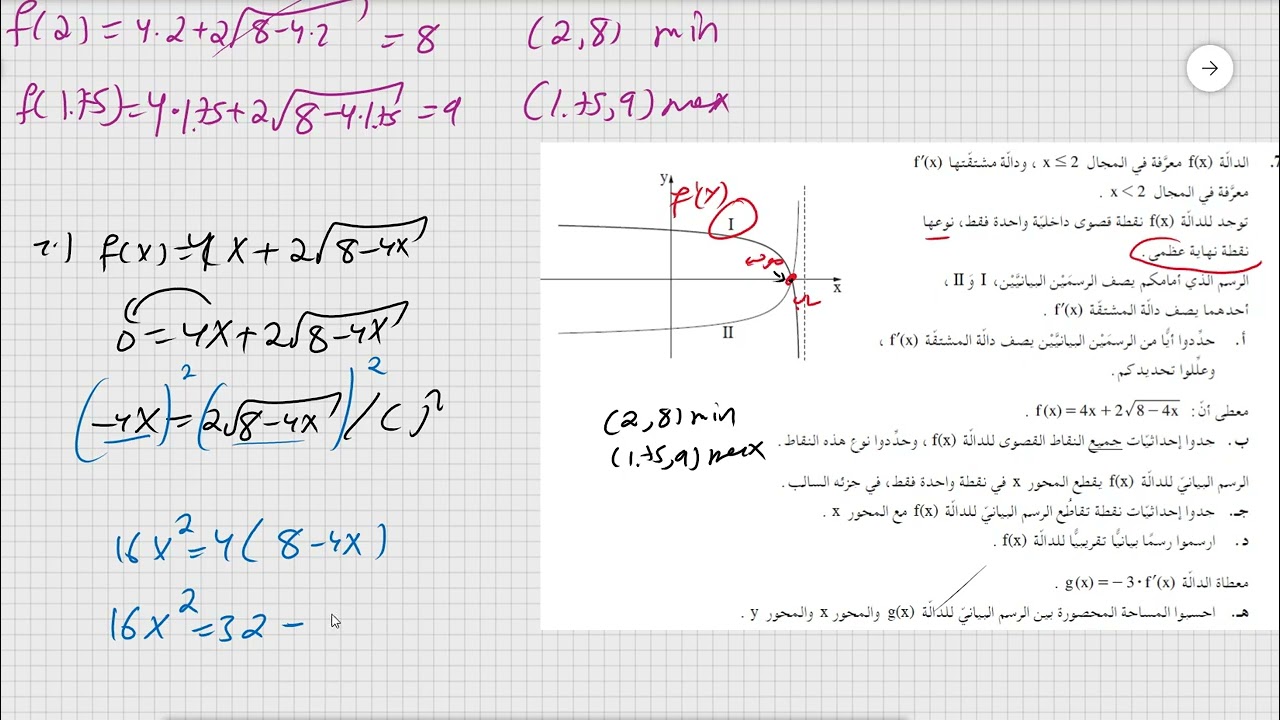 f(2) = 4.2+2√8-4.2 = 8
(2,8) min
f(1.75) = 4.1.75+2√8-4.1.75 = 9
(1.75,9) max
f(x) = 4x + 2√8-4x
0 = 4x + 2√8-4x
(-4x)² = (2√8-4x)² / ( )²
16x² = 4( 8-4x )
16x² = 32 -
y
f'(x)
I
x
II
(2,8) min
(1.75,9) max
7. الدالّة f(x) معرَّفة في المجال x ≤ 2 ، ودالّة مشتقّتها f'(x)
معرَّفة في المجال x < 2 .
توجد للدالّة f(x) نقطة قصوى داخليّة واحدة فقط، نوعها
نقطة نهاية عظمى.
الرسم الذي أمامكم يصف الرسمَيْن البيانيَّيْن، I و II ،
أحدهما يصف دالّة المشتقّة f'(x) .
أ. حدِّدوا أيًّا من الرسمَيْن البيانيَّيْن يصف دالّة المشتقّة f'(x) ،
وعلِّلوا تحديدكم.
معطى أنّ: f(x) = 4x + 2√8 - 4x .
ب. حدوا إحداثيّات جميع النقاط القصوى للدالّة f(x) ، وحدِّدوا نوع هذه النقاط.
الرسم البيانيّ للدالّة f(x) يقطع المحور x في نقطة واحدة فقط، في جزئه السالب.
جـ. حدوا إحداثيّات نقطة تقاطُع الرسم البيانيّ للدالّة f(x) مع المحور x .
د. ارسموا رسمًا بيانيًّا تقريبيًّا للدالّة f(x) .
معطاة الدالّة g(x) = -3·f'(x) .
هـ. احسبوا المساحة المحصورة بين الرسم البيانيّ للدالّة g(x) والمحور x والمحور y .